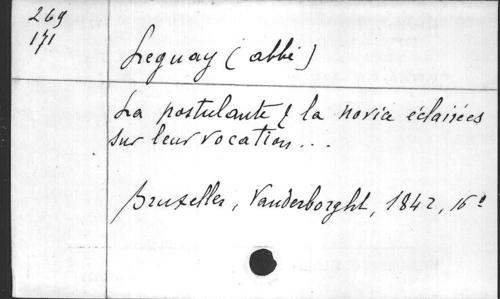 269
171
Leguay (abbé)
La postulante & la novice éclairées
sur leur vocation...
Bruxelles, Vanderborght, 1842, 16°